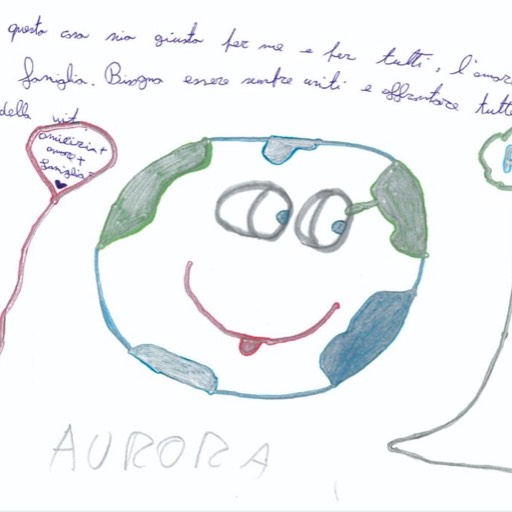 questa cosa sia giusta per me e per tutti, l'amor
famiglia. Bisogna essere sempre uniti e affrontare tutte
della vit
amicizia +
amore +
famiglia =
AURORA